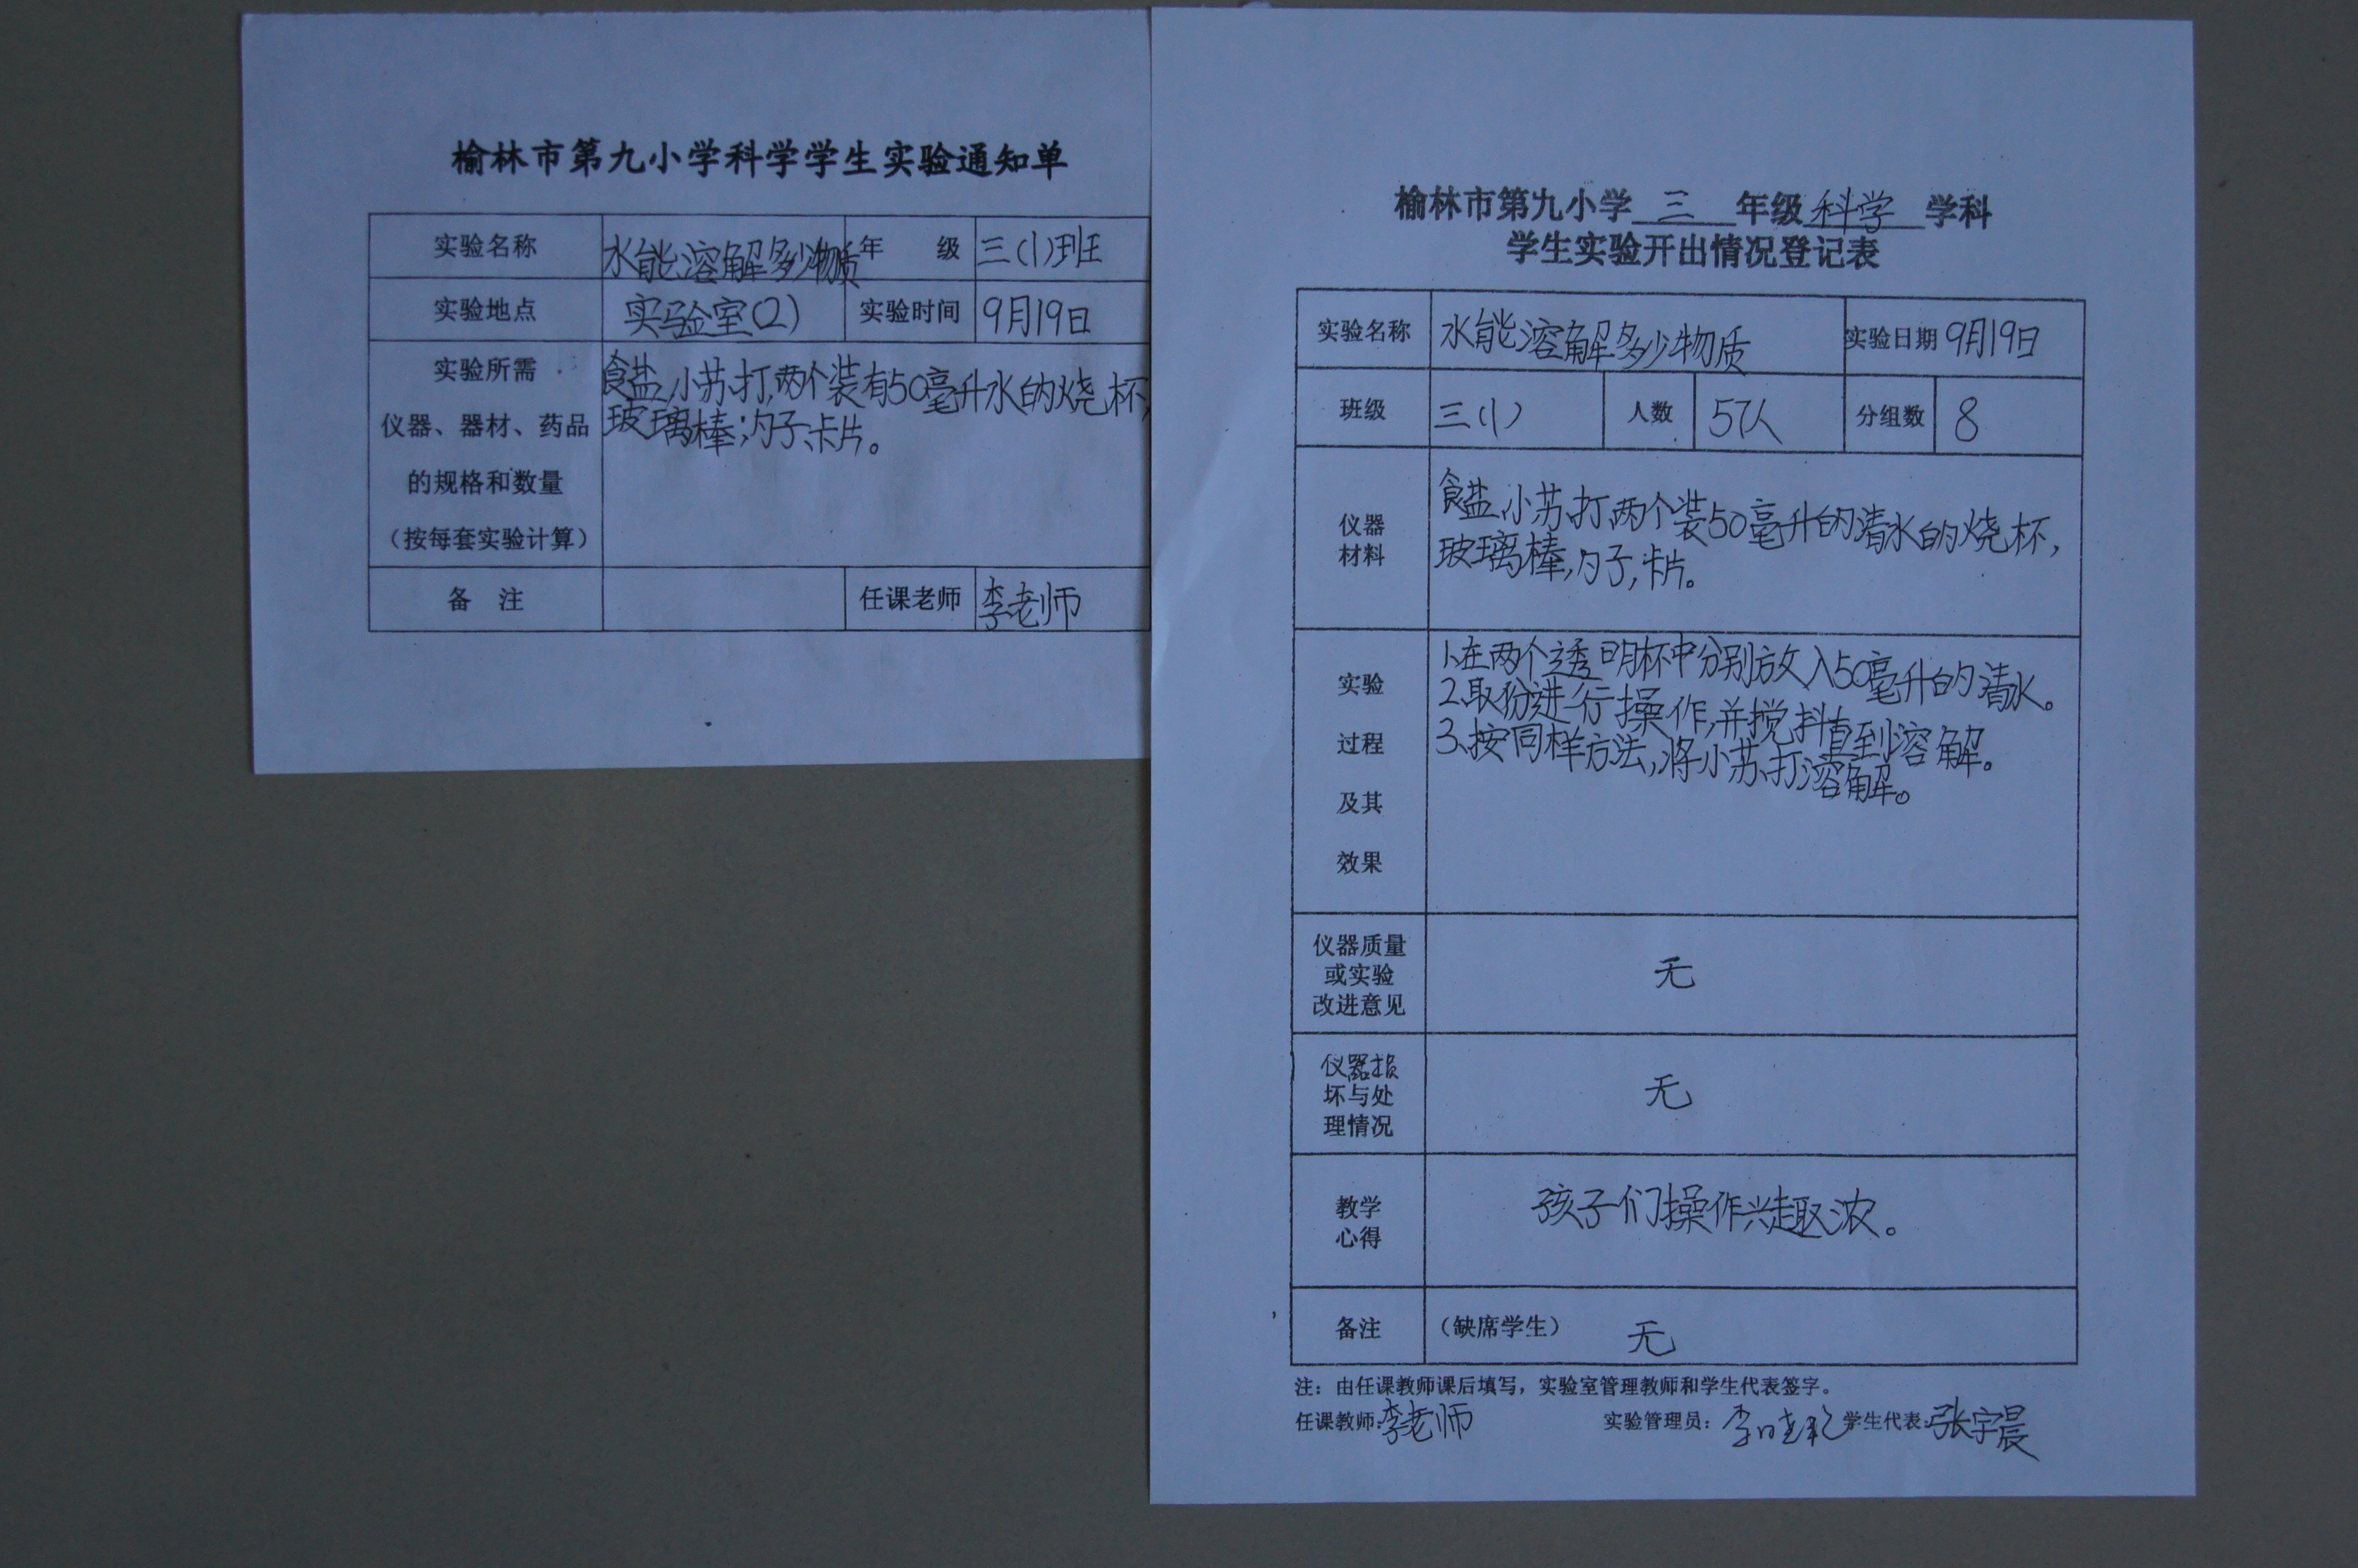 榆林市第九小学科学学生实验通知单
实验名称 水能溶解多少物质 年 级 三(1)班
实验地点 实验室(2) 实验时间 9月19日
实验所需
仪器、器材、药品
的规格和数量
(按每套实验计算)
食盐、小苏打,两个装有50毫升水的烧杯,
玻璃棒;勺子、卡片。
备 注 任课老师 李老师
榆林市第九小学 三 年级 科学 学科
学生实验开出情况登记表
实验名称 水能溶解多少物质 实验日期 9月19日
班级 三(1) 人数 57人 分组数 8
仪器
材料
食盐、小苏打、两个装50毫升的清水的烧杯,
玻璃棒,勺子,卡片。
实验
过程
及其
效果
1、在两个透明杯中分别放入50毫升的清水。
2、取份进行操作,并搅拌直到溶解。
3、按同样方法,将小苏打溶解。
仪器质量
或实验
改进意见
无
仪器损
坏与处
理情况
无
教学
心得
孩子们操作兴趣浓。
备注 (缺席学生) 无
注:由任课教师课后填写,实验室管理教师和学生代表签字。
任课教师:李老师 实验管理员: 学生代表:张宇晨